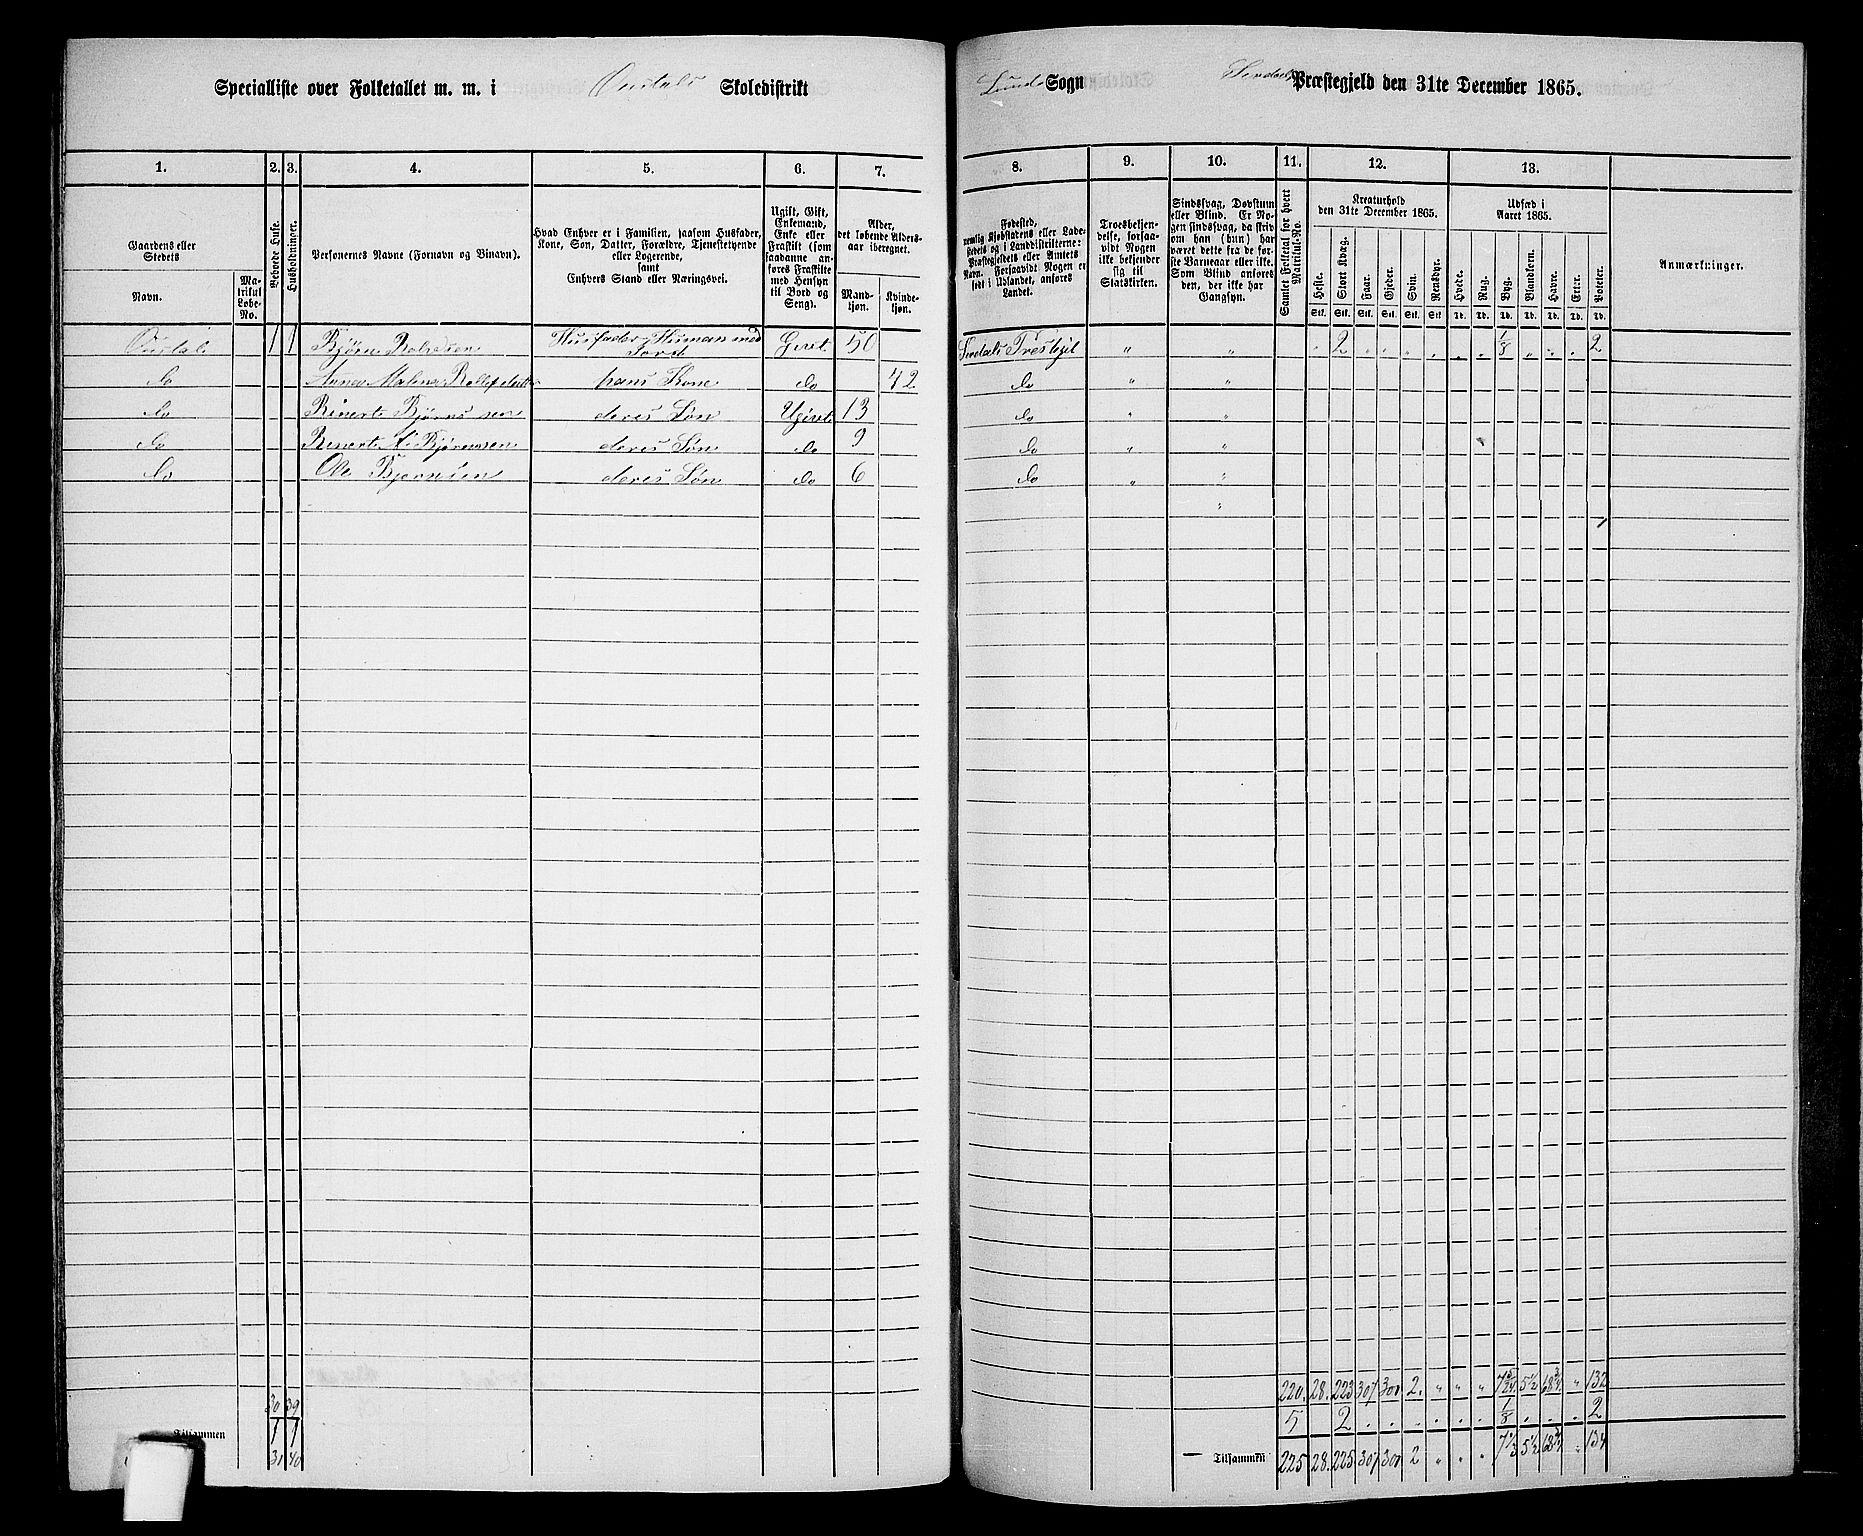 Specialliste over Folketallet m. m. i Oustals Skoledistrikt
Lunds Sogn Sirdals Præstegjeld den 31te December 1865.
1. 2. 3. 4. 5. 6. 7.
8. 9. 10. 11. 12. 13.
Gaardens eller Stedets
Navn.
Matrikul Løbe-No.
Beboede Huse.
Husholdninger.
Personernes Navne (Fornavn og Binavn).
Hvad Enhver er i Familien, saasom Husfader,
Kone, Søn, Datter, Forældre, Tjenestetyende
eller Logerende,
samt
Enhvers Stand eller Næringsvei.
Ugift, Gift,
Enkemand,
Enke eller
Fraskilt (som
saadanne anføres Fraskilte
med Hensyn
til Bord og
Seng).
Alder,
det løbende Aldersaar iberegnet.
Mandkjøn.
Kvindekjøn.
Fødested,
nemlig Kjøbstadens eller Ladestedets og i Landdistrikterne:
Præstegjeldets eller Amtets
Navn. Forsaavidt Nogen er
født i Udlandet, anføres
Landet.
Troesbekjendelse, forsaavidt Nogen
ikke bekjender
sig til
Statskirken.
Sindssvag, Døvstum
eller Blind. Er Nogen sindssvag, da skrives
om han (hun) har
været dette fra de første Barneaar eller ikke.
Som Blind anføres
den, der ikke har
Gangsyn.
Samlet Folketal for hvert Matrikul-No.
Kreaturhold
den 31te December 1865.
Heste. Stort Kvæg. Faar. Gjeder. Svin. Rensdyr.
Udsæd i
Aaret 1865.
Hvede. Rug. Byg. Blandkorn. Havre. Erter. Poteter.
Anmærkninger.
Stk. Stk. Stk. Stk. Stk. Stk. Td. Td. Td. Td. Td. Td. Td.
Oustal 1 1 Bjørn Husfader, Husmand med Jord Givt 50 Sirdals Prestegjl " " 2 1/8 2
do Anne Malena hans Kone do 42 do " "
do Rinert Bjørnsen deres Søn Ugivt 13 do " "
do Rinert Bjørnsen deres Søn do 9 do " "
do Ole Bjørnsen deres Søn do 6 do " "
30 39 220. 28. 223 307 301 2. " " " 5 1/2 68 3/4 " 132
1 1 5 2 1/8 2
Tilsammen 31 40 Tilsammen 225 28. 225 307 301 2 " " " 7 1/3 5 1/2 68 3/4 " 134